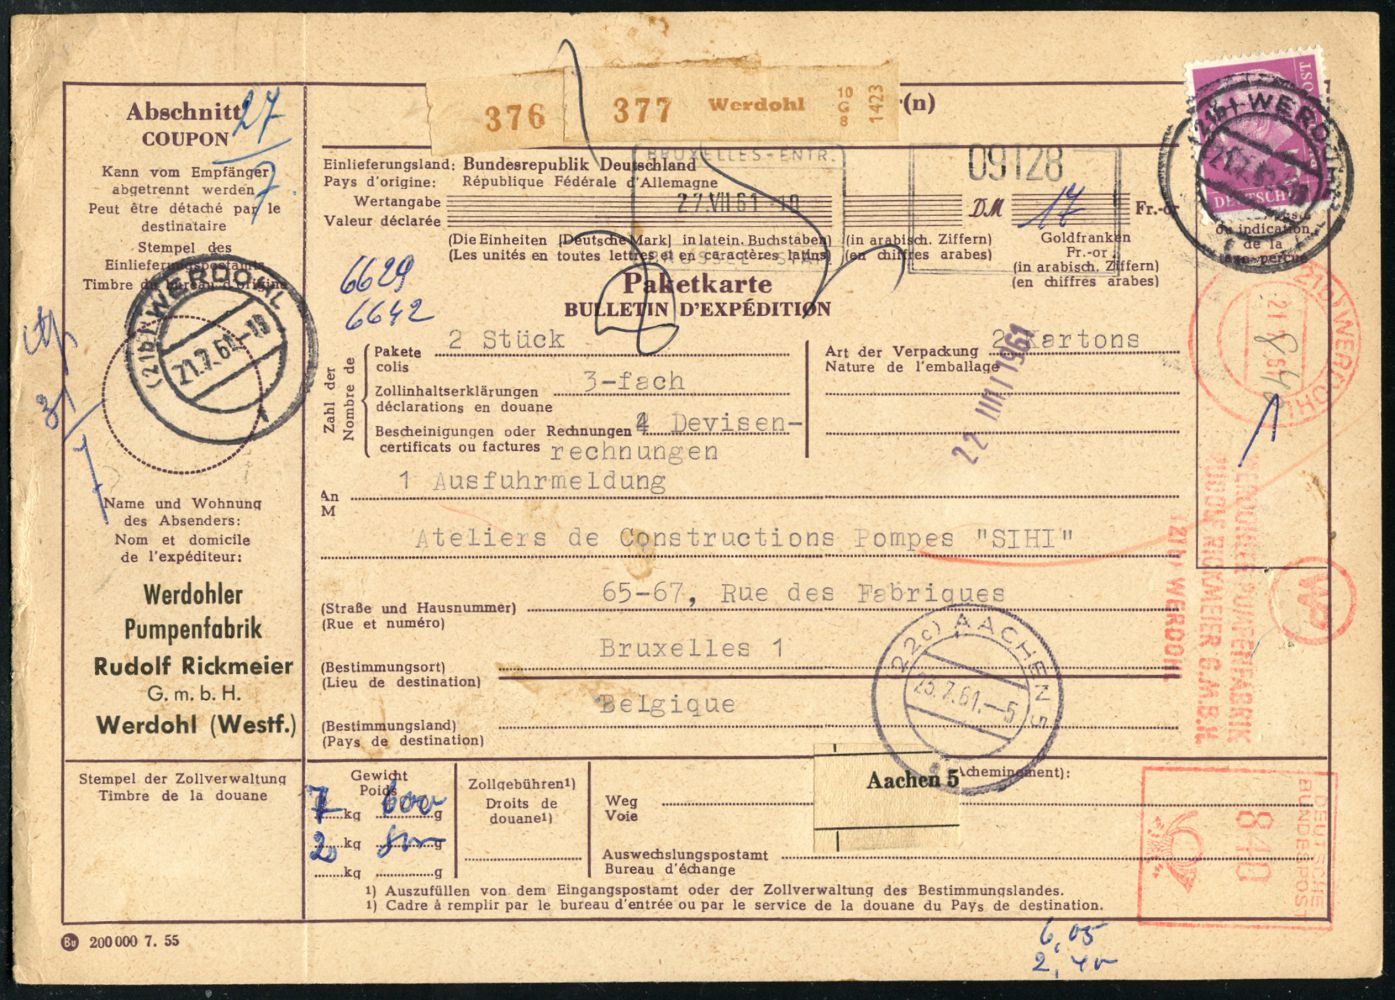 Abschnitt
COUPON
27
7.
Kann vom Empfänger
abgetrennt werden
Peut être détaché par le
destinataire
Stempel des
Einlieferungspostamts
Timbre du bureau d'origine
(21b) WERDOHL
21.7.61.-18
Name und Wohnung
des Absenders:
Nom et domicile
de l'expéditeur:
Werdohler
Pumpenfabrik
Rudolf Rickmeier
G. m. b. H.
Werdohl (Westf.)
Stempel der Zollverwaltung
Timbre de la douane
376
377 Werdohl
10
G
8
1423
r(n)
Einlieferungsland: Bundesrepublik Deutschland
Pays d'origine: République Fédérale d'Allemagne
BRUXELLES-ENTR.
27.VII 61 -18
09128
Wertangabe
Valeur déclarée
DM
17
Fr.-or
(Die Einheiten [Deutsche Mark] in latein. Buchstaben) (in arabisch. Ziffern)
(Les unités en toutes lettres et en caractères latins) (en chiffres arabes)
Goldfranken
Fr.-or
(in arabisch. Ziffern)
(en chiffres arabes)
ou indication
de la
taxe perçue
DEUTSCHE
POST
WERDOHL
6629
6642
Paketkarte
BULLETIN D'EXPÉDITION
Zahl der
Nombre de
Pakete
colis
2 Stück
Zollinhaltserklärungen
déclarations en douane
3-fach
Bescheinigungen oder Rechnungen
certificats ou factures
4 Devisen-
rechnungen
1 Ausfuhrmeldung
Art der Verpackung
Nature de l'emballage
2 Kartons
An
M
Ateliers de Constructions Pompes "SIHI"
65-67, Rue des Fabriques
(Straße und Hausnummer)
(Rue et numéro)
Bruxelles 1
(Bestimmungsort)
(Lieu de destination)
Belgique
(Bestimmungsland)
(Pays de destination)
(22c) AACHEN 5
25.7.61.-5
Gewicht
Poids
7 kg 600 g
2 kg g
kg g
Zollgebühren1)
Droits de
douane1)
Weg
Voie
Acheminement):
Aachen 5
Auswechslungspostamt
Bureau d'échange
1) Auszufüllen von dem Eingangspostamt oder der Zollverwaltung des Bestimmungslandes.
1) Cadre à remplir par le bureau d'entrée ou par le service de la douane du Pays de destination.
21b WERDOHL
WERDOHLER PUMPENFABRIK
RUDOLF RICKMEIER G.M.B.H.
(21b) WERDOHL
WP
DEUTSCHE
BUNDESPOST
840
Bu 200 000 7. 55
6,05
2,40